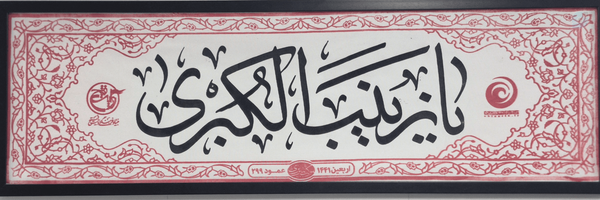 یا زینب الکبری
اربعین ۱۴۴۱ عمود ۲۹۹